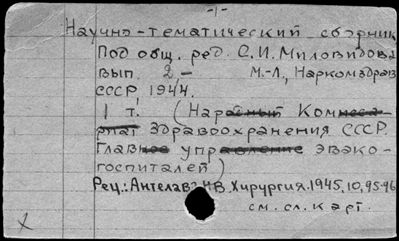 -1-
Научно-тематический сборник
Под общ. ред. С.И. Миловидова
вып. 2,- М.-Л., Наркомздрав
СССР, 1944.
1 т. (Народный Комисса-
риат Здравоохранения СССР.
Главное управление эвако-
госпиталей)
Рец.: Ангелов Н.В. Хирургия. 1945, 10, 95-96
см. сл. карт.